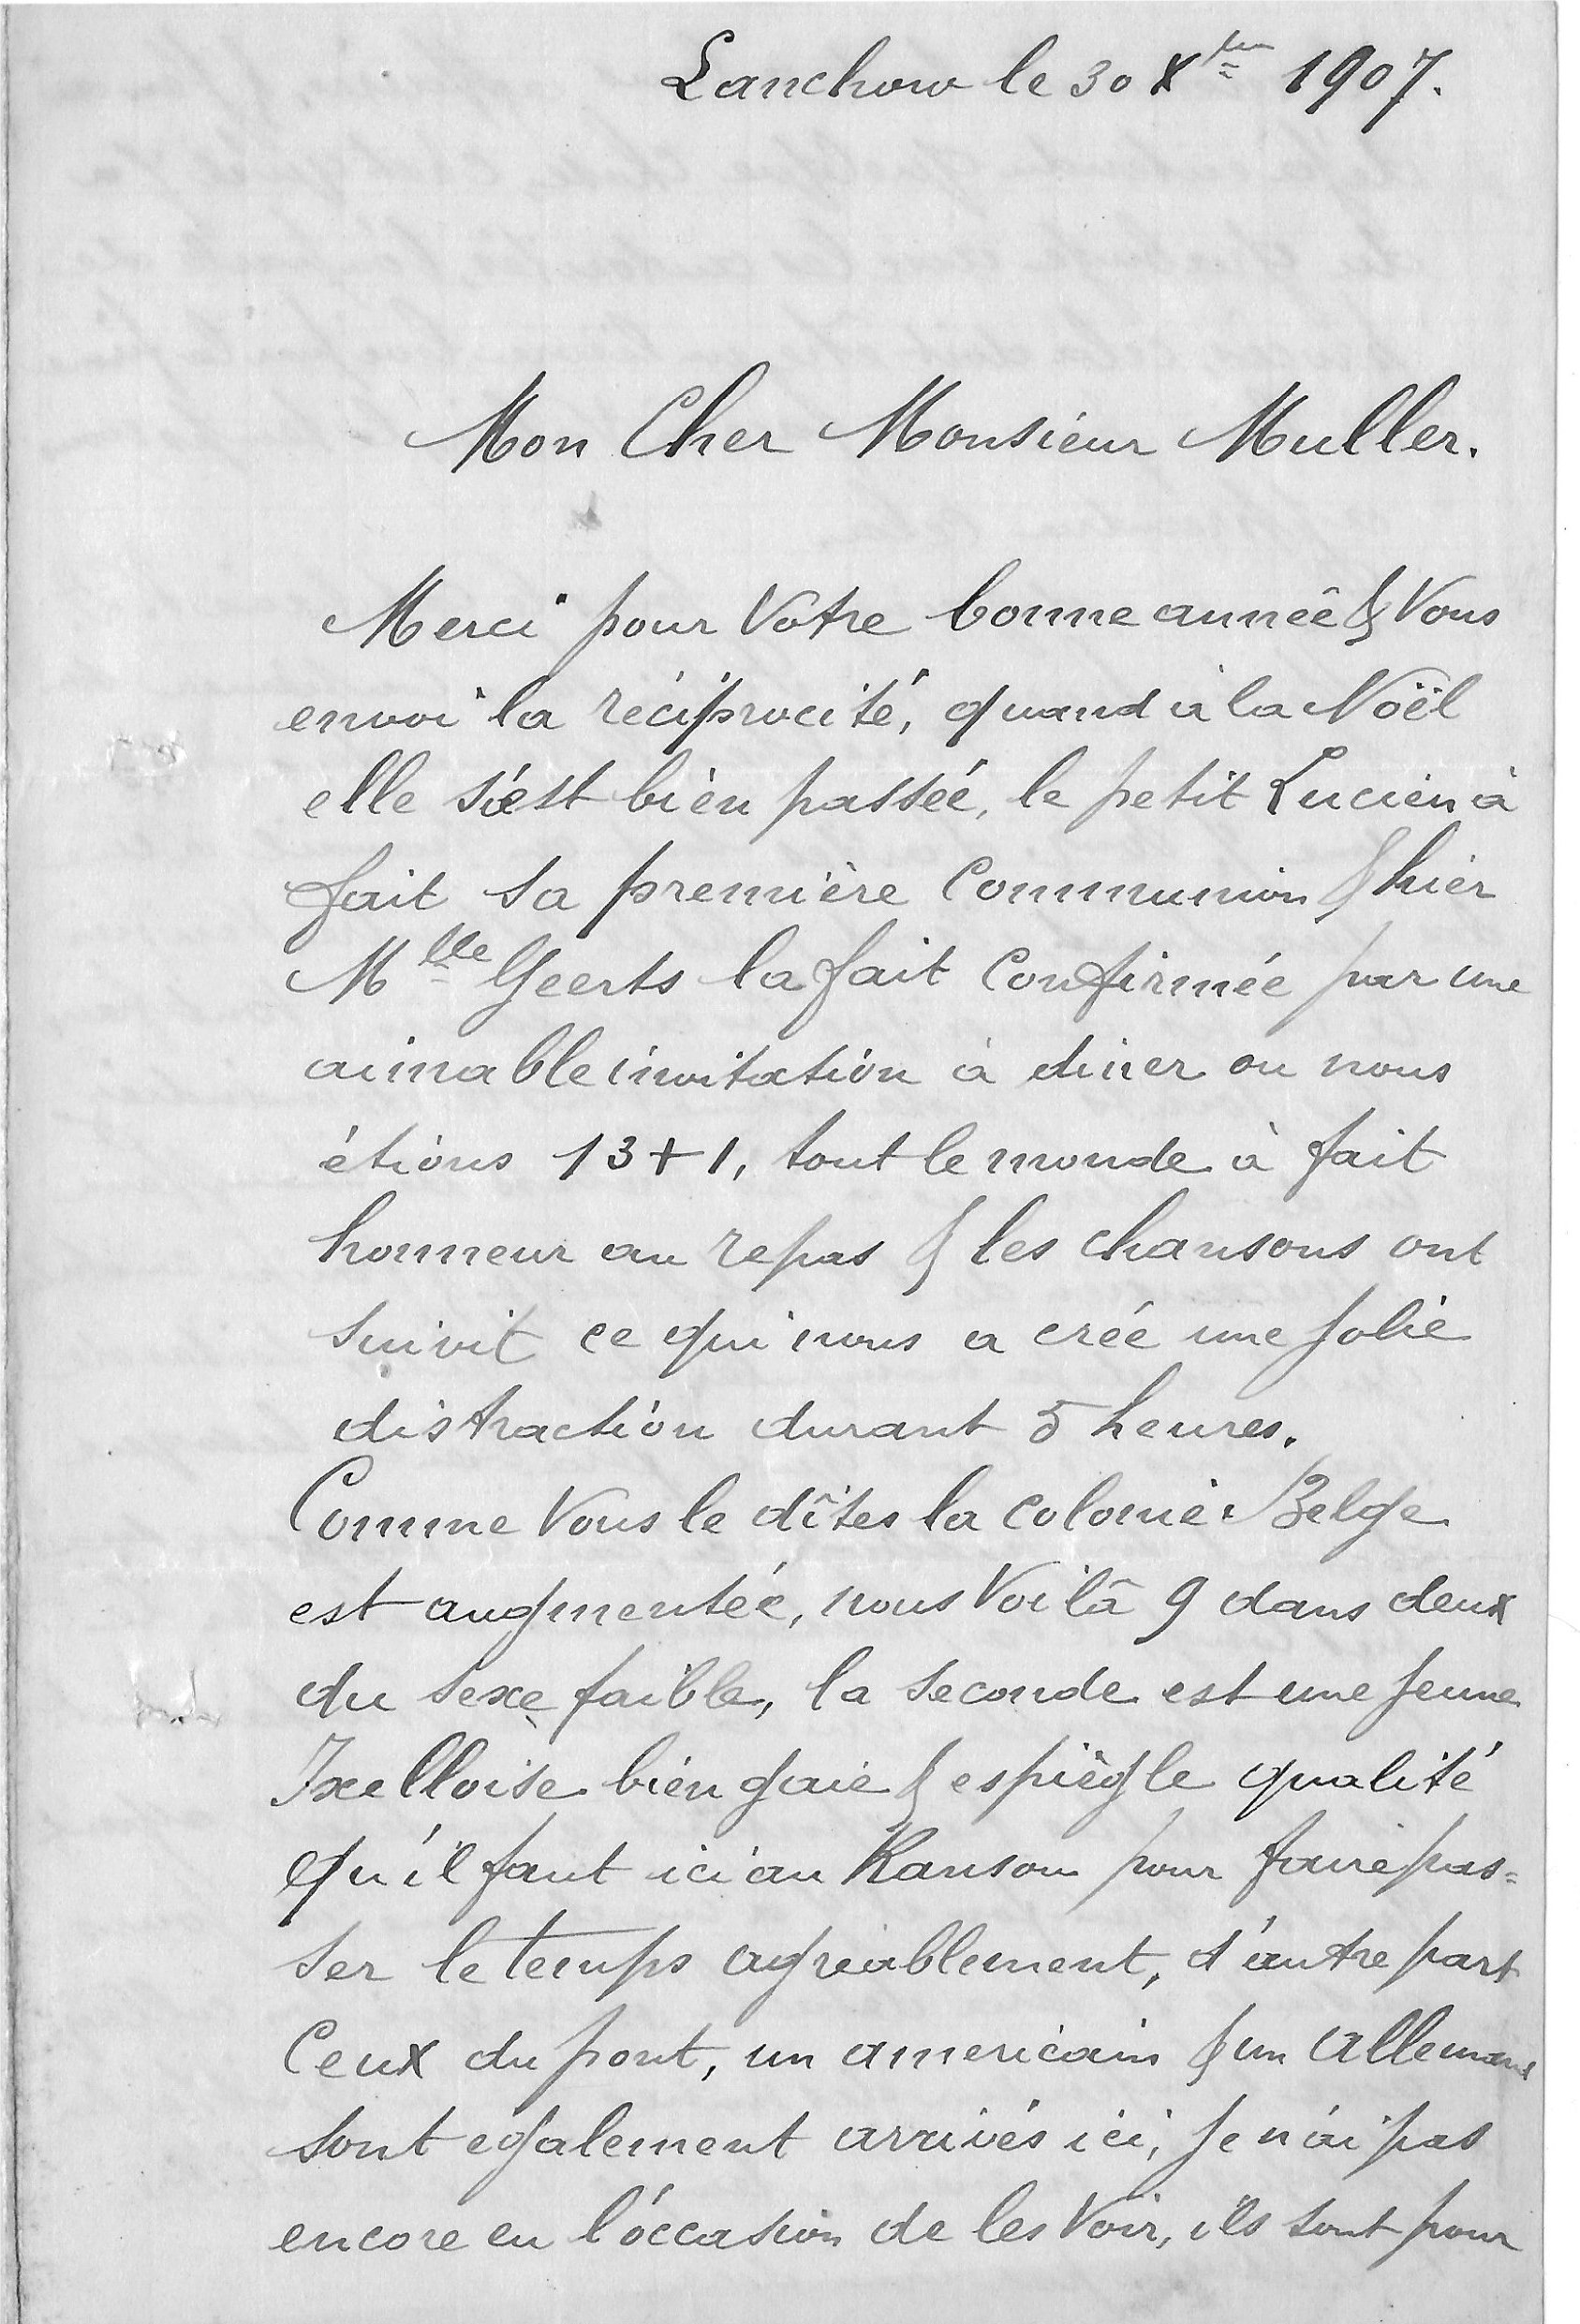 Lanchow le 30 Xbre 1907.
Mon Cher Monsieur Muller.
Merci pour Votre bonne année & Vous
envoi la réciprocité, quand à la Noël
elle s'est bien passée, le petit Lucien à
fait sa première Communion & hier
Mlle Geerts la fait Confirmée par une
aimable invitation à diner ou nous
étions 13+1, tout le monde à fait
honneur au repas & les chansons ont
suivit ce qui nous a créé une jolie
distraction durant 5 heures.
Comme Vous le dîtes la colonie Belge
est augmentée, nous Voilà 9 dans deux
du sexe faible, la seconde est une jeune
Ixelloise bien gaie & espiègle qualité
qu'il faut ici au Kansou pour faire pas=
ser le temps agréablement, d'autre part
Ceux du pont, un americain & un Allemand
sont egalement arrivés ici, je n'ai pas
encore eu l'occasion de les Voir, ils sont pour